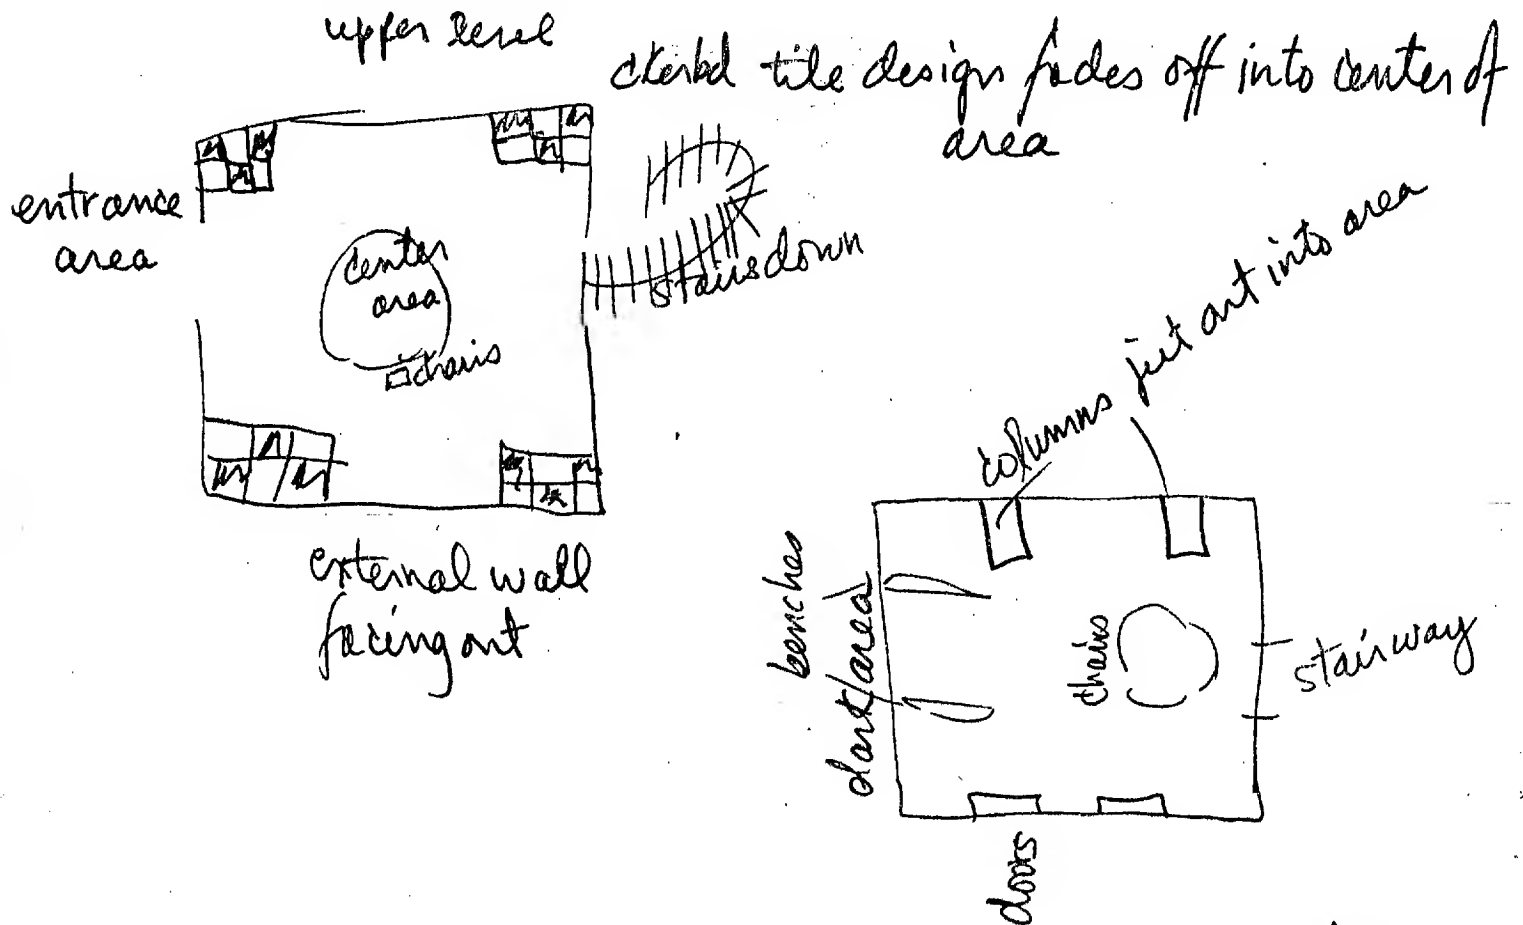 upper level
ckerbd tile design fades off into center of
area
entrance
area
center
area
chairs
stairs down
external wall
facing out
columns jut out into area
benches
dark area
chairs
stairway
doors